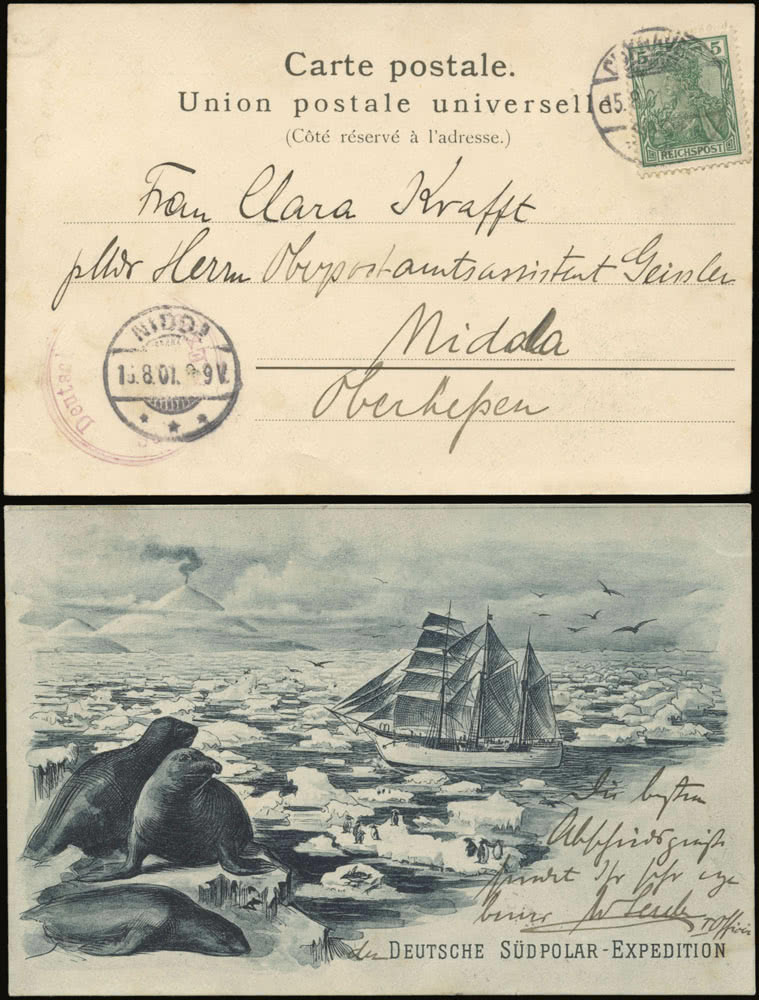 Carte postale.
Union postale universelle.
(Côté réservé à l'adresse.)
5
REICHSPOST
15.8
Frau Clara Krafft
Herrn Oberpostamtsassistent Geissler
Nidda
Oberhessen
NIDDA
15.8.01. 8-9V.
Deut
Die besten
Abschiedsgrüsse
sendet Ihr sehr erge
bener
I Offizier
der DEUTSCHE SÜDPOLAR-EXPEDITION